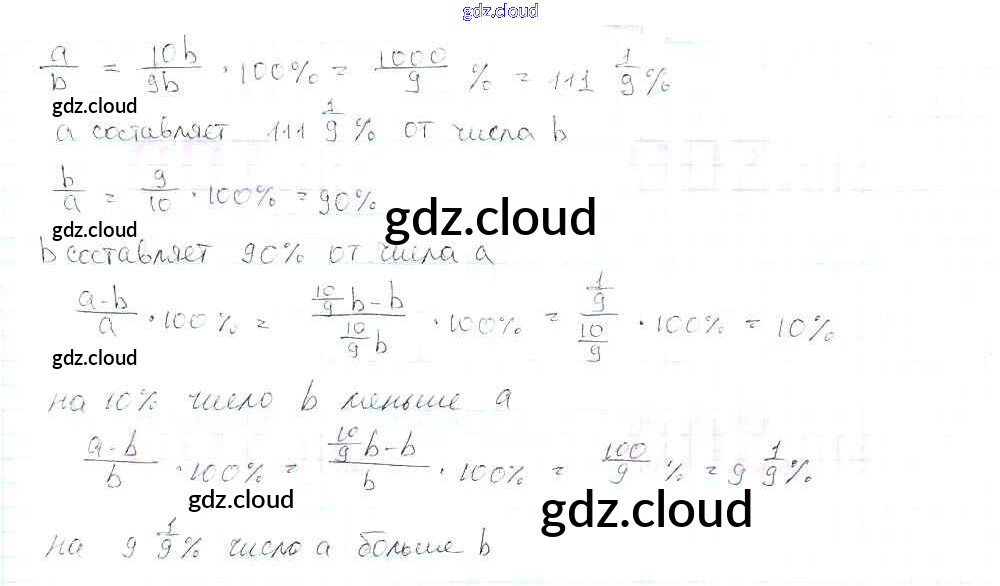 gdz.cloud
a/b = 10b/9b · 100% = 1000/9 % = 111 1/9 %
gdz.cloud
a составляет 111 1/9 % от числа b
b/a = 9/10 · 100% = 90%
gdz.cloud
gdz.cloud
b составляет 90% от числа a
(a-b)/a · 100% = (10/9 b - b)/(10/9 b) · 100% = (1/9)/(10/9) · 100% = 10%
gdz.cloud
на 10% число b меньше a
(a-b)/b · 100% = (10/9 b - b)/b · 100% = 100/9 % = 9 1/9 %
gdz.cloud
gdz.cloud
на 9 1/9 % число a больше b